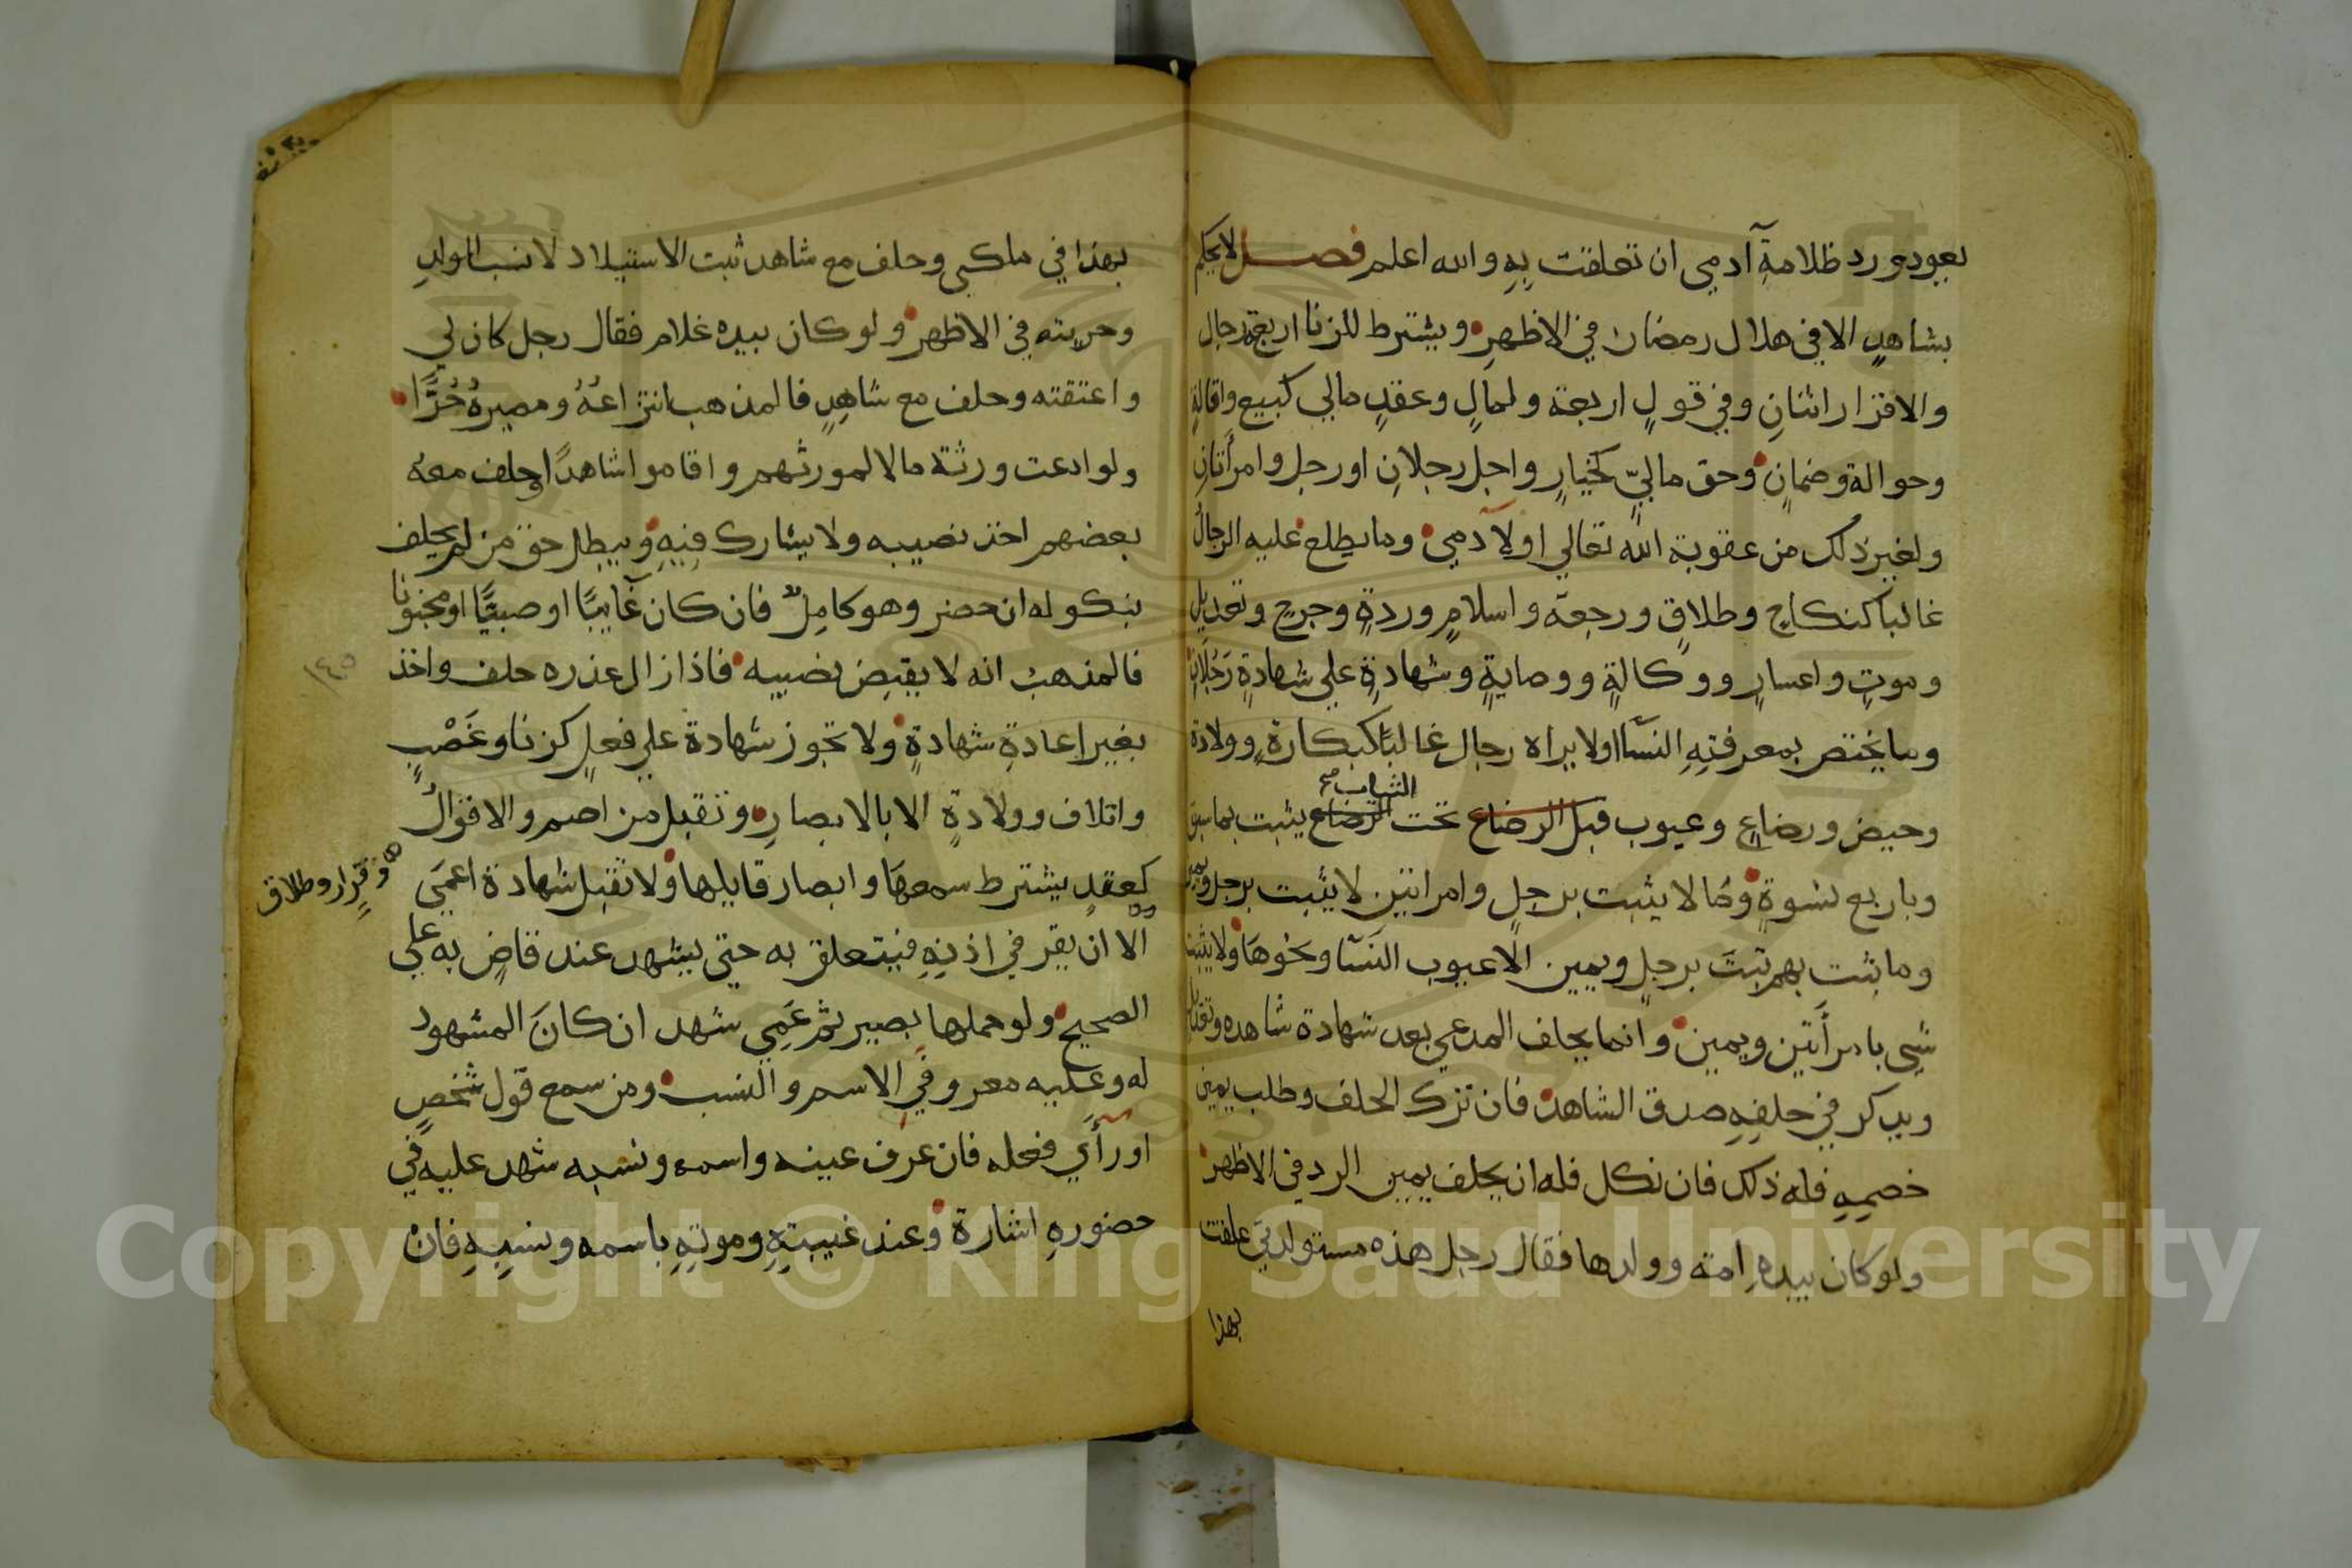 يعود ورد ظلامة آدمي ان تعلقت به والله اعلم فصل لا يحكم
بشاهدٍ الا في هلال رمضان في الاظهر ويشترط للزنا اربعة رجال
والاقرار اثنانِ وفي قولٍ اربعة ولمالٍ وعقدٍ مالي كبيع واقالةٍ
وحوالة وضمانٍ وحق ماليّ كخيارٍ واجل رجلانِ او رجل وامرأتانِ
ولغير ذلك من عقوبة الله تعالي او لآدمي وما يطلع عليه الرجالُ
غالبا كنكاح وطلاقٍ ورجعة واسلامٍ وردةٍ وجرح وتعديل
وموتٍ واعسارٍ ووكالةٍ ووصايةٍ وشهادةٍ علي شهادةٍ رَجُلانِ
وما يختص بمعرفتِهِ النسآ اولا يراه رجال غالبًا كبكارةٍ وولادة
وحيض ورضاعٍ وعيوب قبل الرضاع تحت الرضاع يثبت بما سبق
الثياب صح
وباربع نسوةٍ وما لا يثبت برجلٍ وامراتين لا يثبت برجل ويمين
وما ثبت بهم ثبتَ برجلٍ ويمين الا عيوب النسآ ونحوهَا ولا يثبت
شي بامرأتين ويمين وانما يحلف المدعي بعد شهادة شاهده وتعديله
ويدكر في حلفِهِ صدق الشاهد فان ترك الحلف وطلب يمين
خصمِهِ فله ذلك فان نكل فله ان يحلف يمين الرد في الاظهر
ولو كان بيدهِ امة وولدها فقال رجل هذه مستولدتي علقت
بهذا
بهذا في ملكي وحلف مع شاهد ثبت الاستيلاد لا نسب الولدِ
وحريته في الاظهر ولو كان بيده غلام فقال رجل كان لي
واعتقته وحلف مع شاهِدٍ فالمذهب انتزاعُهُ ومصيرهُ حُرًّا
ولو ادعت ورثة مالا لمورثهم واقاموا شاهدًا وحلف معهُ
بعضهم اخذ نصيبه ولا يشارك فيهِ ويبطل حق من لم يحلف
بنكوله ان حضر وهو كامِلٌ فان كان غآيبًا او صبيًّا او مجنونا
فالمذهبُ انه لا يقبض نصيبه فاذا زال عذره حلف واخذ
١٤٥
بغير اعادةِ شهادةٍ ولا تجوز شهادة علي فعلٍ كزنا وغَصْبٍ
واتلاف وولادةٍ الا بالابصارِ وتقبل من اصم والاقوالُ
كعقدٍ يشترط سمعهَا وابصار قايلها ولا تقبل شهادة اعمَي
وقرارٍ وطلاق
الا ان يقر في اذنِهِ فيتعلق به حتي يشهد عند قاضٍ به علي
الصحيح ولو حملها بصير ثم عَمِي شهد ان كانَ المشهود
له وعليه معروفَي الاسم والنسب ومن سمع قول شخصٍ
او رأَي فعله فان عرف عينه واسمه ونسبه شهد عليه في
حضورهِ اشارة وعند غيبتِهِ وموتِهِ باسمه ونسبِهِ فان
Copyright © King Saud University